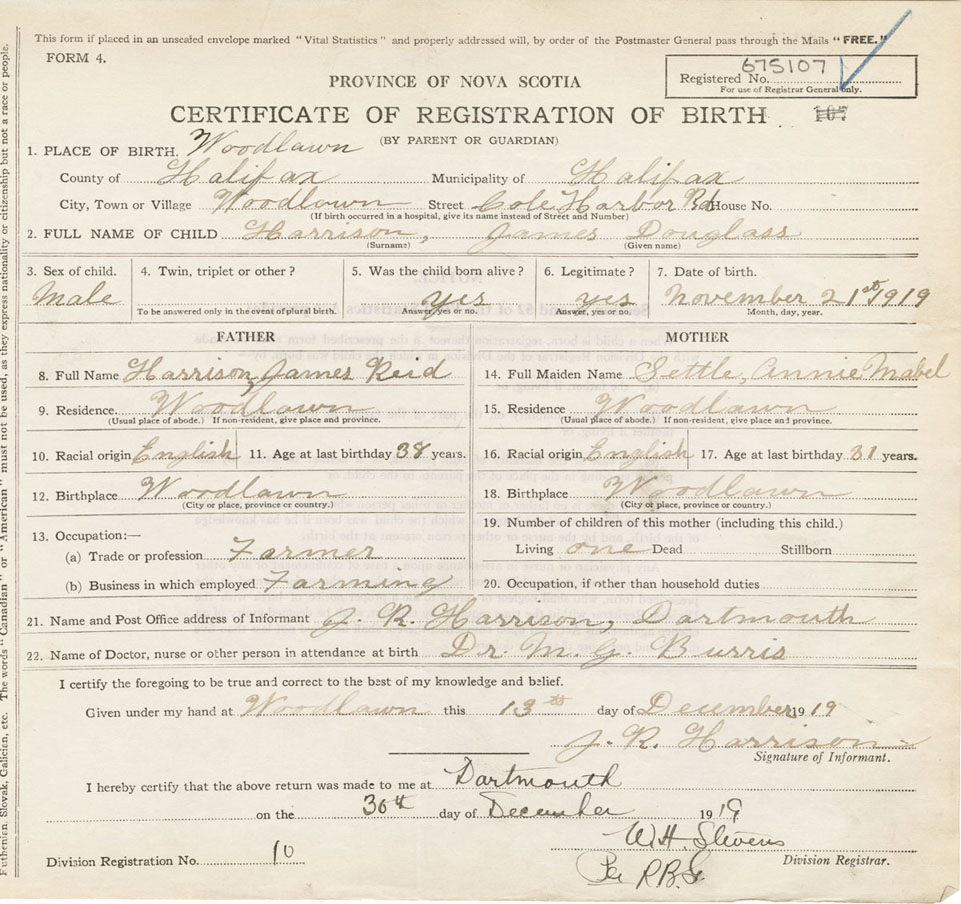 This form if placed in an unsealed envelope marked "Vital Statistics" and properly addressed will, by order of the Postmaster General pass through the Mails "FREE."
FORM 4.
675107
Registered No.
For use of Registrar General only.
PROVINCE OF NOVA SCOTIA
CERTIFICATE OF REGISTRATION OF BIRTH 107
(BY PARENT OR GUARDIAN)
1. PLACE OF BIRTH. Woodlawn
County of Halifax Municipality of Halifax
City, Town or Village Woodlawn Street Cole Harbor Rd House No.
(If birth occurred in a hospital, give its name instead of Street and Number)
2. FULL NAME OF CHILD Harrison, James Douglass
(Surname) (Given name)
3. Sex of child. 4. Twin, triplet or other? 5. Was the child born alive? 6. Legitimate? 7. Date of birth.
Male yes yes November 21st 1919
To be answered only in the event of plural birth. Answer, yes or no. Answer, yes or no. Month, day, year.
FATHER MOTHER
8. Full Name Harrison, James Reid 14. Full Maiden Name Settle, Annie Mabel
9. Residence Woodlawn 15. Residence Woodlawn
(Usual place of abode.) If non-resident, give place and province. (Usual place of abode.) If non-resident, give place and province.
10. Racial origin English 11. Age at last birthday 38 years. 16. Racial origin English 17. Age at last birthday 31 years.
12. Birthplace Woodlawn 18. Birthplace Woodlawn
(City or place, province or country.) (City or place, province or country.)
13. Occupation:— 19. Number of children of this mother (including this child.)
(a) Trade or profession Farmer Living one Dead Stillborn
(b) Business in which employed Farming 20. Occupation, if other than household duties
21. Name and Post Office address of Informant J. R. Harrison, Dartmouth
22. Name of Doctor, nurse or other person in attendance at birth Dr. M. G. Burris
I certify the foregoing to be true and correct to the best of my knowledge and belief.
Given under my hand at Woodlawn this 13th day of December 1919
J. R. Harrison
Signature of Informant.
I hereby certify that the above return was made to me at Dartmouth
on the 30th day of December 1919
W.H. Stevens
Division Registration No. 10 Division Registrar.
Per R.B.S.
Ruthenien, Slovak, Galician, etc. The words "Canadian" or "American" must not be used, as they express nationality or citizenship but not a race or people.